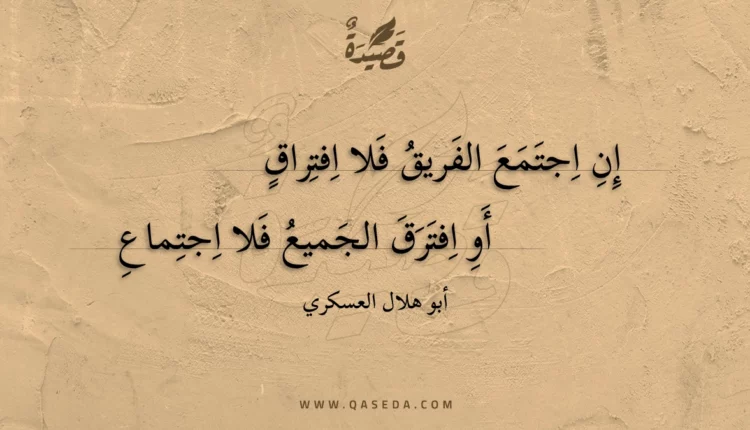 قَصِيدَةٌ
إِنِ اِجتَمَعَ الفَريقُ فَلا اِفتِراقٍ
أَوِ اِفتَرَقَ الجَميعُ فَلا اِجتِماعِ
أبو هلال العسكري
WWW.QASEDA.COM